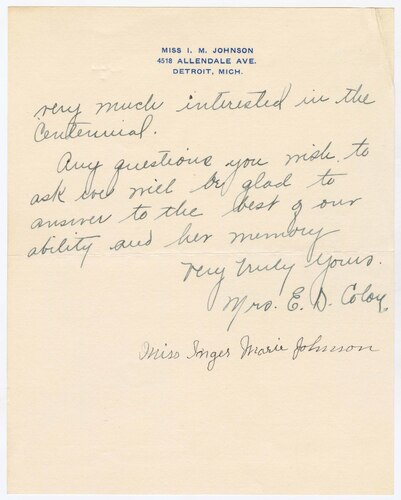 MISS I. M. JOHNSON
4518 ALLENDALE AVE.
DETROIT, MICH.
very much interested in the
Centennial.
Any questions you wish to
ask we will be glad to
answer to the best of our
ability and her memory
Very truly yours.
Mrs. E. D.
Miss Inger Marie Johnson